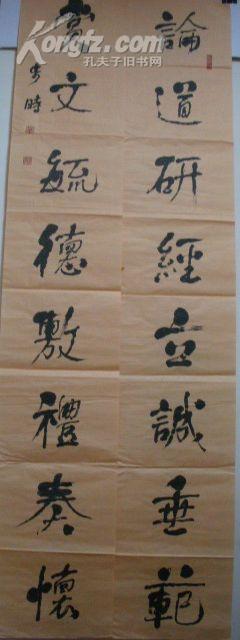 論道研經立誠垂範
尚文毓德敷禮奏懷
Kongfz.com
孔夫子旧书网